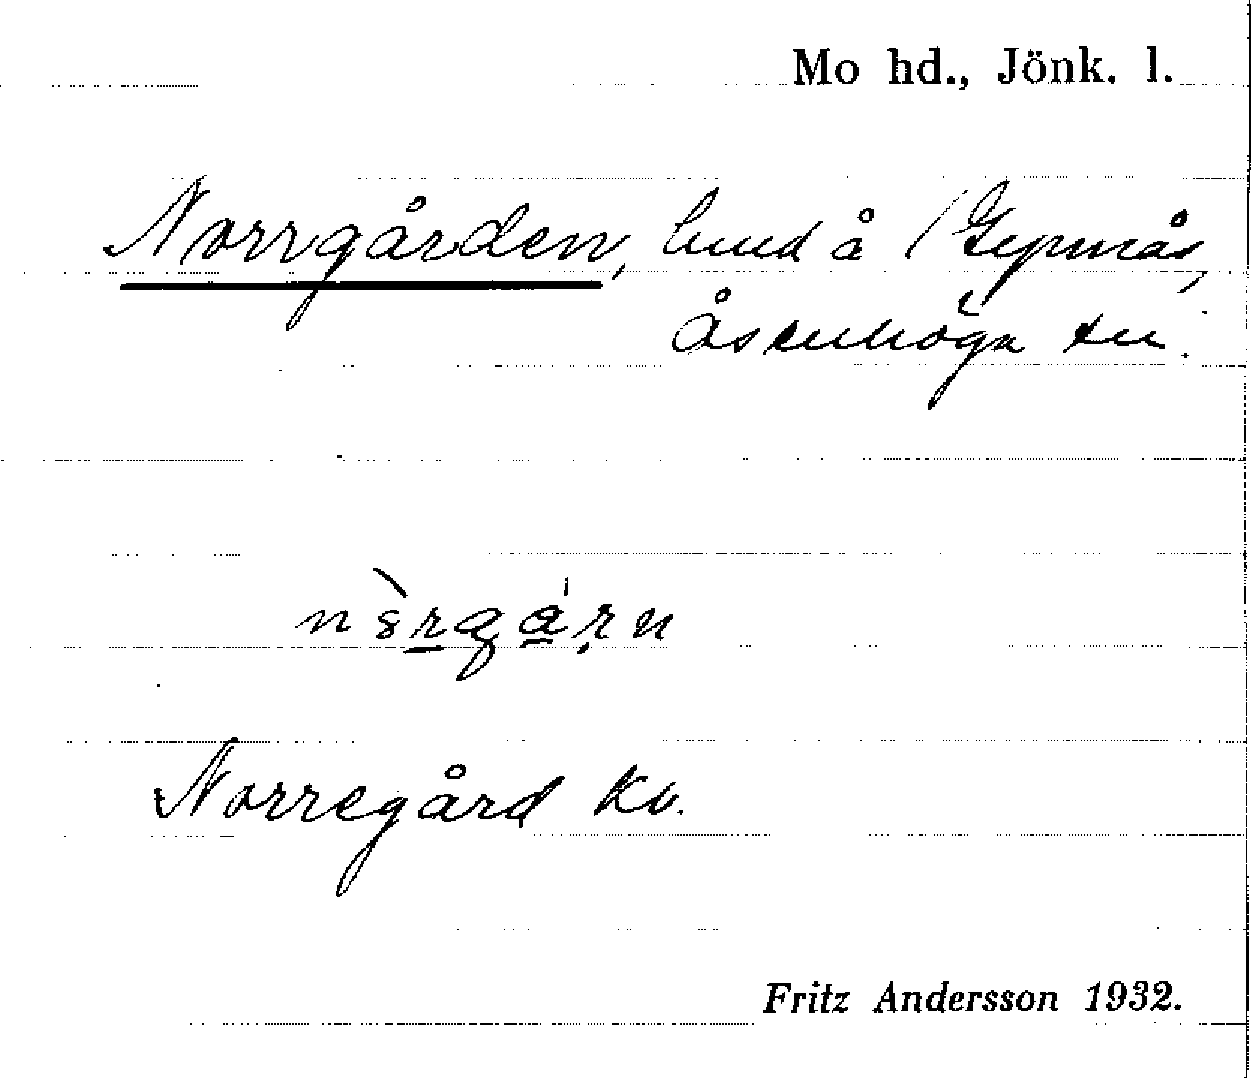 Mo hd., Jönk. l.
Norrgården, hmd å
Åsenhöga sn.
Norregård kv.
Fritz Andersson 1932.